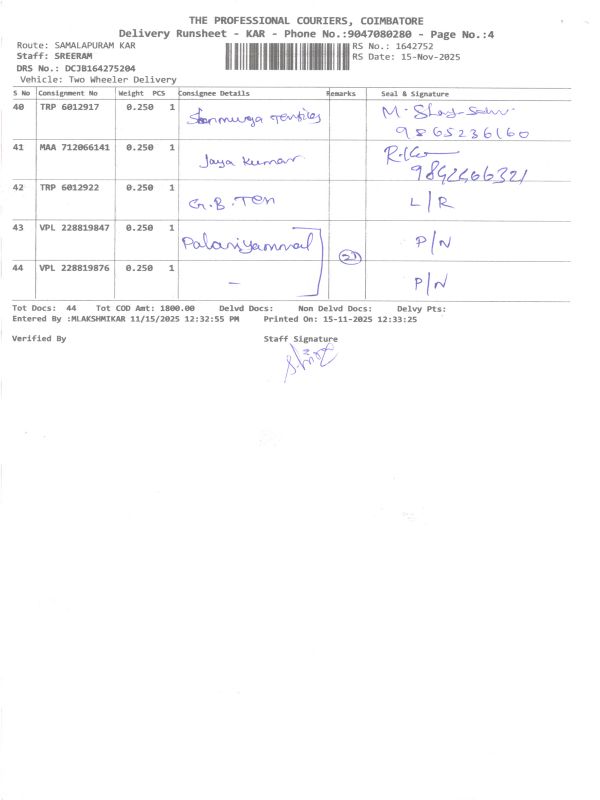 THE PROFESSIONAL COURIERS, COIMBATORE
Delivery Runsheet - KAR - Phone No.:9047080280 - Page No.:4
Route: SAMALAPURAM KAR RS No.: 1642752
Staff: SREERAM RS Date: 15-Nov-2025
DRS No.: DCJB164275204
Vehicle: Two Wheeler Delivery
S No Consignment No Weight PCS Consignee Details Remarks Seal & Signature
40 TRP 6012917 0.250 1 M.
9865236160
41 MAA 712066141 0.250 1 Jaya Kumar
42 TRP 6012922 0.250 1 G.B. Tex L/R
43 VPL 228819847 0.250 1 Palaniyammal P/N
44 VPL 228819876 0.250 1 - P/N
Tot Docs: 44 Tot COD Amt: 1800.00 Delvd Docs: Non Delvd Docs: Delvy Pts:
Entered By :MLAKSHMIKAR 11/15/2025 12:32:55 PM Printed On: 15-11-2025 12:33:25
Verified By Staff Signature